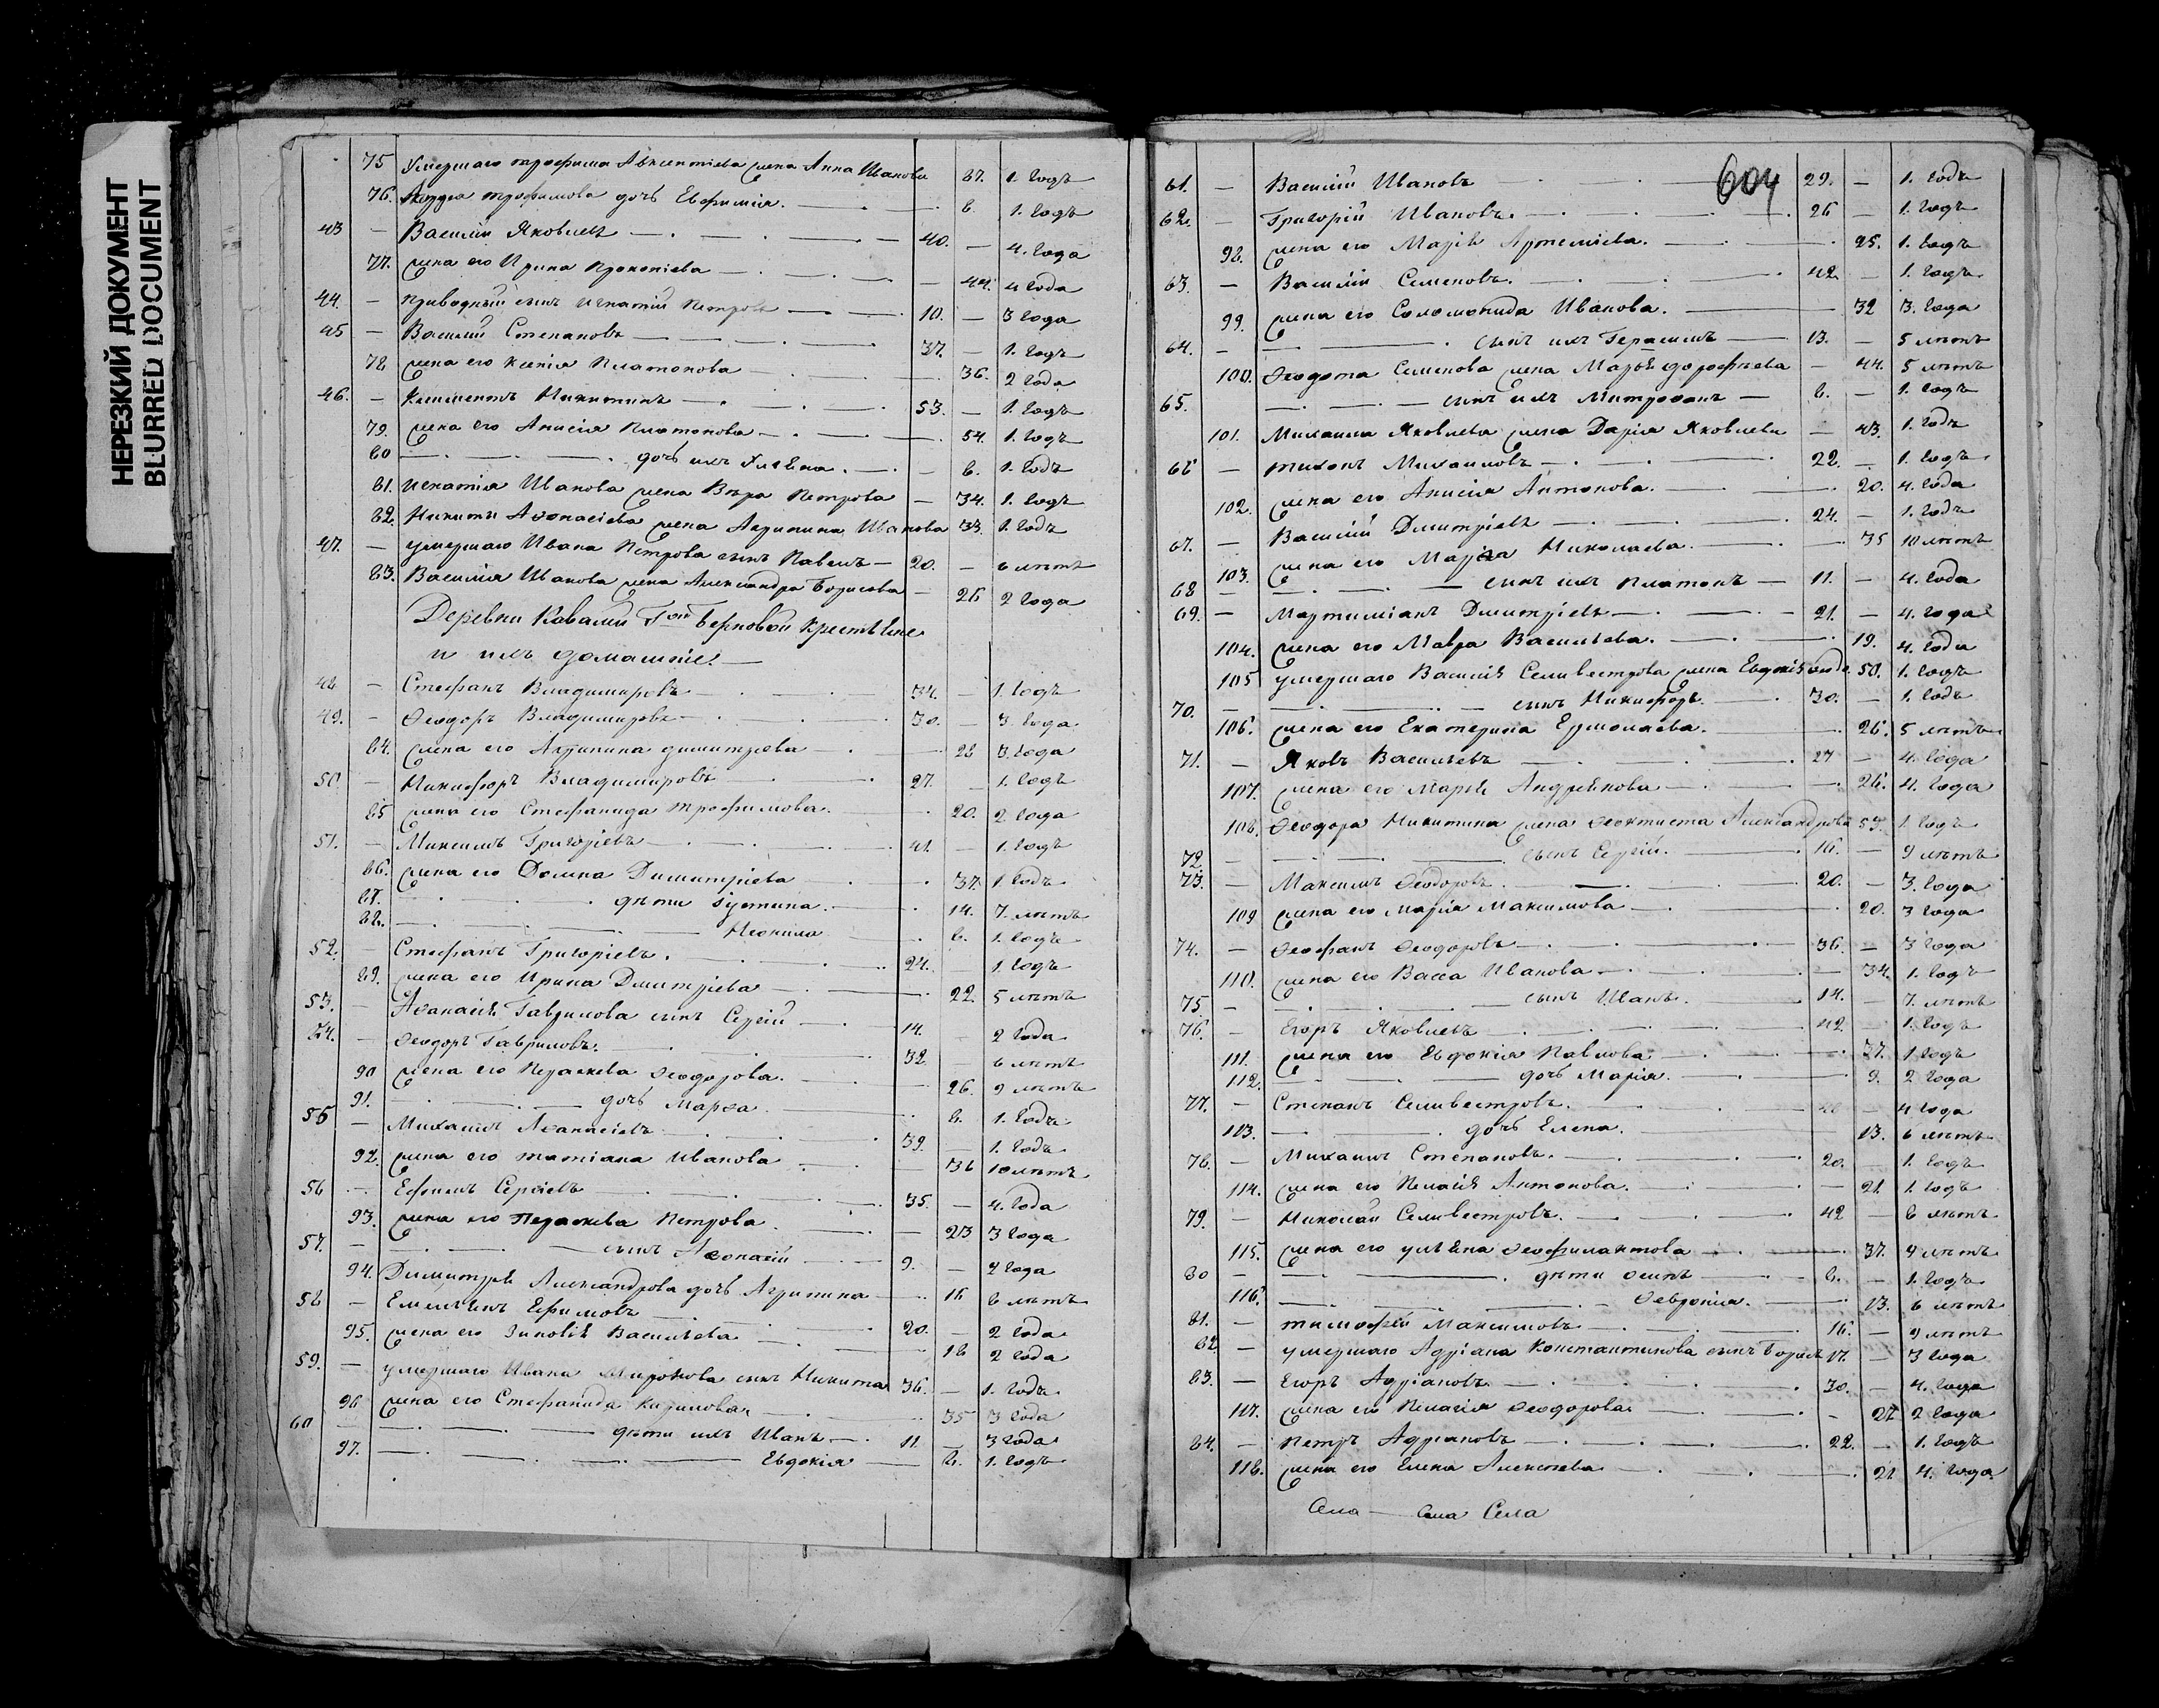 НЕРЕЗКИЙ ДОКУМЕНТ
BLURRED DOCUMENT
75 Умершаго трофима Авксентіева жена Анна Иванова 67. 1. годъ
76. трофимова дочь Евфимія. 6. 1. годъ
43 — Василій Яковлевъ — 40. — 4. года
77. жена его Ирина Прокопіева — 44. 4 года
44. — приводный сынъ Игнатій Петровъ — 10. — 3 года
45 — Василій Степановъ — 37. — 1. годъ
78 жена его Ксенія Платонова — 36. 2 года
46. — Климентъ Никитинъ — 53. — 1. годъ
79. жена его Анисія Платонова — 54. 1. годъ
80 — дочь ихъ Ульяна. — 6. 1. годъ
81. Игнатія Иванова жена Вѣра Петрова — 34. 1. годъ
82. Никиты Аѳонасіева жена Агрипина Иванова 33. 1. годъ
47. — умершаго Ивана Петрова сынъ Павелъ — 20. — 6 лѣтъ
83. Василія Иванова жена Александра Борисова — 26 2 года
Деревни Ковали Г Берновой крестьяне
и ихъ домашніе. —
48 — Стефанъ Владимировъ — 34. — 1. годъ
49. — Ѳеодоръ Владимировъ — 30. — 3. года
84. жена его Агрипина димитріева — 28 3. года
50. — Никифоръ Владимировъ — 27. — 1. годъ
85 жена его Стефанида трофимова. 20. 2. года
51. — Максимъ Григоріевъ — 41. — 1. годъ
86. жена его Домна Димитріева 37. 1. годъ
87. дѣти Іустина. — 14. 7. лѣтъ
88. — Неонила 6. 1. годъ
52. — Стефанъ Григоріевъ. 24. — 1. годъ
89. жена его Ирина Дмитріева — 22. 5 лѣтъ
53. — Аѳанасія Гаврилова сынъ Сергій — 14. 2 года
54. — Ѳеодоръ Гавриловъ. 32. — 6 лѣтъ
90 жена его Параскева Ѳеодорова. — 26. 9 лѣтъ
91. — дочь Марѳа. 6. 1. годъ
55 — Михаилъ Аѳанасіевъ — 39. — 1. годъ
92. жена его татіана Иванова — 36 10 лѣтъ
56 — Ефимъ Сергіевъ 35. — 4. года
93. жена его Параскева Петрова. — 23 3 года
57. — сынъ Аѳонасій — 9. — 2 года
94. Димитрія Александрова дочь Агрипина — 16 6 лѣтъ
58 — Емельянъ Ефимовъ — 20. — 2 года
95. жена его Зиновія Васильева — 18 2 года
59. — умершаго Ивана Миронова сынъ Никита 36. — 1. годъ
96 жена его Стефанида Кирилова — 35 3 года
60 — дѣти ихъ Иванъ — 11. — 3 года
97. — Евдокія — 6. 1. годъ
604
61. — Василій Ивановъ 29. — 1. годъ
62. — Григорій Ивановъ. — 26 — 1. годъ
98. жена его Марія Артеміева. — 25. 1. годъ
63. — Василій Семеновъ. — 42. — 1. годъ
99. жена его Соломонида Иванова. — 32 3. года
64. — сынъ ихъ Герасимъ — 13. — 5 лѣтъ
100. Ѳеодота Семенова жена Марья дорофѣева — 44. 5 лѣтъ
65. — сынъ ихъ Митрофанъ — 6. — 1. годъ
101. Михаила Яковлева жена Дарія Яковлева — 43. 1. годъ
66 — тихонъ Михаиловъ — 22. — 1. годъ
102. жена его Анисія Антонова. — 20. 4. года
67. — Василій Дмитріевъ — 24. — 1. годъ
103. жена его Марія Николаева. — 35 10 лѣтъ
68 — сынъ ихъ Платонъ — 11. — 4. года
69. — Мартиміанъ Дмитріевъ — 21. — 4. года
104. жена его Мавра Васильева. — 19. 4. года
105 умершаго Василія Селивестрова жена Евдокія 50. 1. годъ
70. — сынъ Никифоръ. — 30. — 1. годъ
106. жена его Екатерина Ермолаева. 26. 5 лѣтъ
71. — Яковъ Васильевъ — 27 — 4. года
107. жена его Марья Андреянова — 26. 4. года
108. Ѳеодора Никитина жена Ѳеоктиста Александрова 53. 1. годъ
72. — сынъ Сергій. — 16. — 9 лѣтъ
73. — Максимъ Ѳеодоровъ. — 20. — 3. года
109 жена его Марія Максимова — 20. 3 года
74. — Ѳеофанъ Ѳеодоровъ — 36. — 3 года
110. жена его Васса Иванова — 34. 1. годъ
75. — сынъ Иванъ. — 14. — 7. лѣтъ
76. — Егоръ Яковлевъ — 42. — 1. годъ
111. жена его Евдокія Павлова — 37. 1. годъ
112. — дочь Марія. — 9. 2 года
77. — Степанъ Селивестровъ. — 4 года
113. — дочь Елена. — 13. 6 лѣтъ
78. — Михаилъ Степановъ. — 20. — 1. годъ
114. жена его Пелагія Антонова. — 21. 1. годъ
79. — Николай Селивестровъ. — 42 — 6 лѣтъ
115. жена его ульяна Ѳеофилактова — 37. 4 лѣтъ
80 — дѣти Осипъ — 6. — 1. годъ
116. — Ѳевронія. — 13. 6 лѣтъ
81. — тимофей Максимовъ — 16. — 9 лѣтъ
82 — умершаго Адріана Константинова сынъ Борисъ 17. — 3 года
83. — Егоръ Адріановъ. — 30. — 4. года
117. жена его Пелагія Ѳеодорова. — 27 2 года
84. — Петръ Адріановъ — 22. — 1. годъ
118. жена его Елена Алексѣева — 21 4. года
Села — Села Села